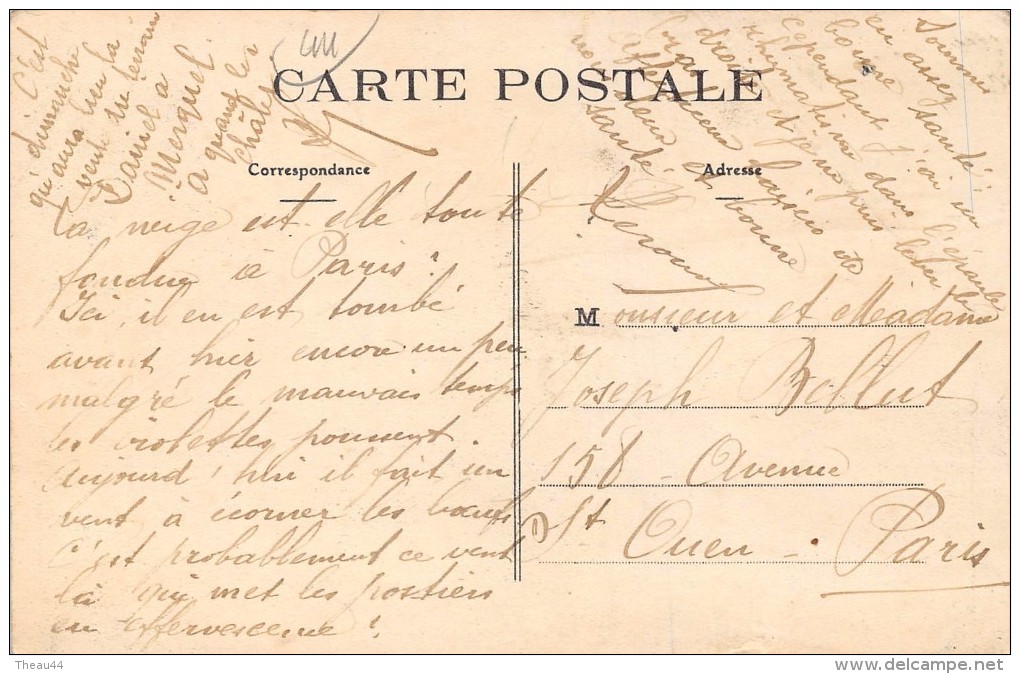 CARTE POSTALE
Correspondance
Adresse
La neige est-elle toute
fondue à Paris ?
Ici, il en est tombé
avant hier encore un peu
malgré le mauvais temps
les violettes poussent.
aujourd'hui il fait un
vent à écorner les bœufs
C'est probablement ce vent
là qui met les postiers
en effervescence !
C'est
dimanche
qu'aura lieu la
vente du terrain
Daniel a
Merquel
a quand les
châles
Sommes
en assez
bonne santé
cependant j'ai un
rhumatisme dans l'épaule
droite et je ne puis lever le
bras
Affectueux baisers de
nous deux et bonne
santé
Monsieur et Madame
Joseph Bellut
158 - Avenue
St Ouen - Paris
Theau44
www.delcampe.net